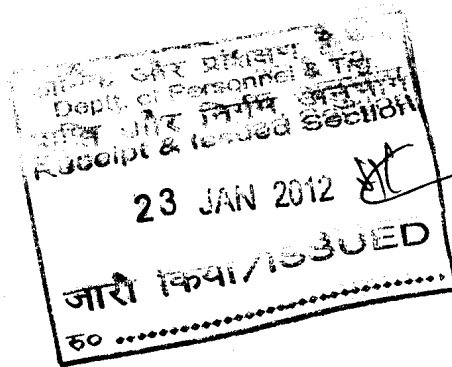 और
Deptt. of Personnel & Trg.
और निर्गम अनुभाग
Receipt & Issued Section
23 JAN 2012
जारी किया/ISSUED
रु० ..............................